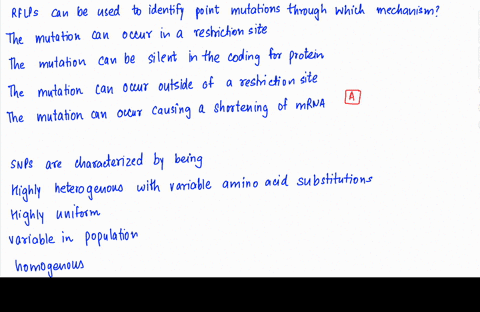 RFLPs can be used to identify point mutations through which mechanism?
The mutation can occur in a restriction site
The mutation can be silent in the coding for protein
The mutation can occur outside of a restriction site
The mutation can occur causing a shortening of mRNA
A
SNPs are characterized by being
Highly heterogenous with variable amino acid substitutions
Highly uniform
variable in population
homogenous